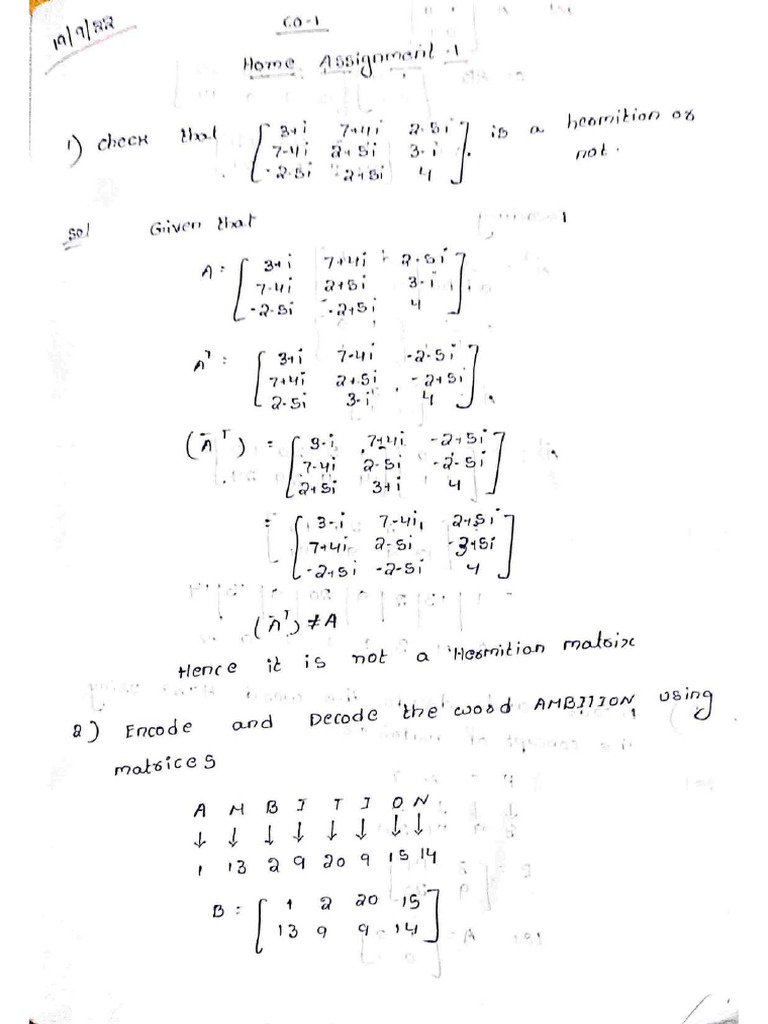 19/9/22
CO-1
Home Assignment-1
1) Check that [ 3+i 7+4i 2-5i ] is a hermition or
[ 7-4i 2+5i 3-i ] not.
[ -2-5i -2+5i 4 ].
Sol Given that
A = [ 3+i 7+4i 2-5i ]
[ 7-4i 2+5i 3-i ].
[ -2-5i -2+5i 4 ]
Aᵀ = [ 3+i 7-4i -2-5i ]
[ 7+4i 2+5i -2+5i ]
[ 2-5i 3-i 4 ].
(Āᵀ) = [ 3-i 7+4i -2+5i ]
[ 7-4i 2-5i -2-5i ]
[ 2+5i 3+i 4 ]
= [ 3-i 7-4i 2+5i ]
[ 7+4i 2-5i -3+5i ]
[ -2+5i -2-5i 4 ]
(Āᵀ) ≠ A
Hence it is not a Hermition matrix
2) Encode and Decode the word AMBITION, using
matrices
A M B I T I O N
↓ ↓ ↓ ↓ ↓ ↓ ↓ ↓
1 13 2 9 20 9 15 14
B = [ 1 2 20 15 ]
[ 13 9 9 14 ]